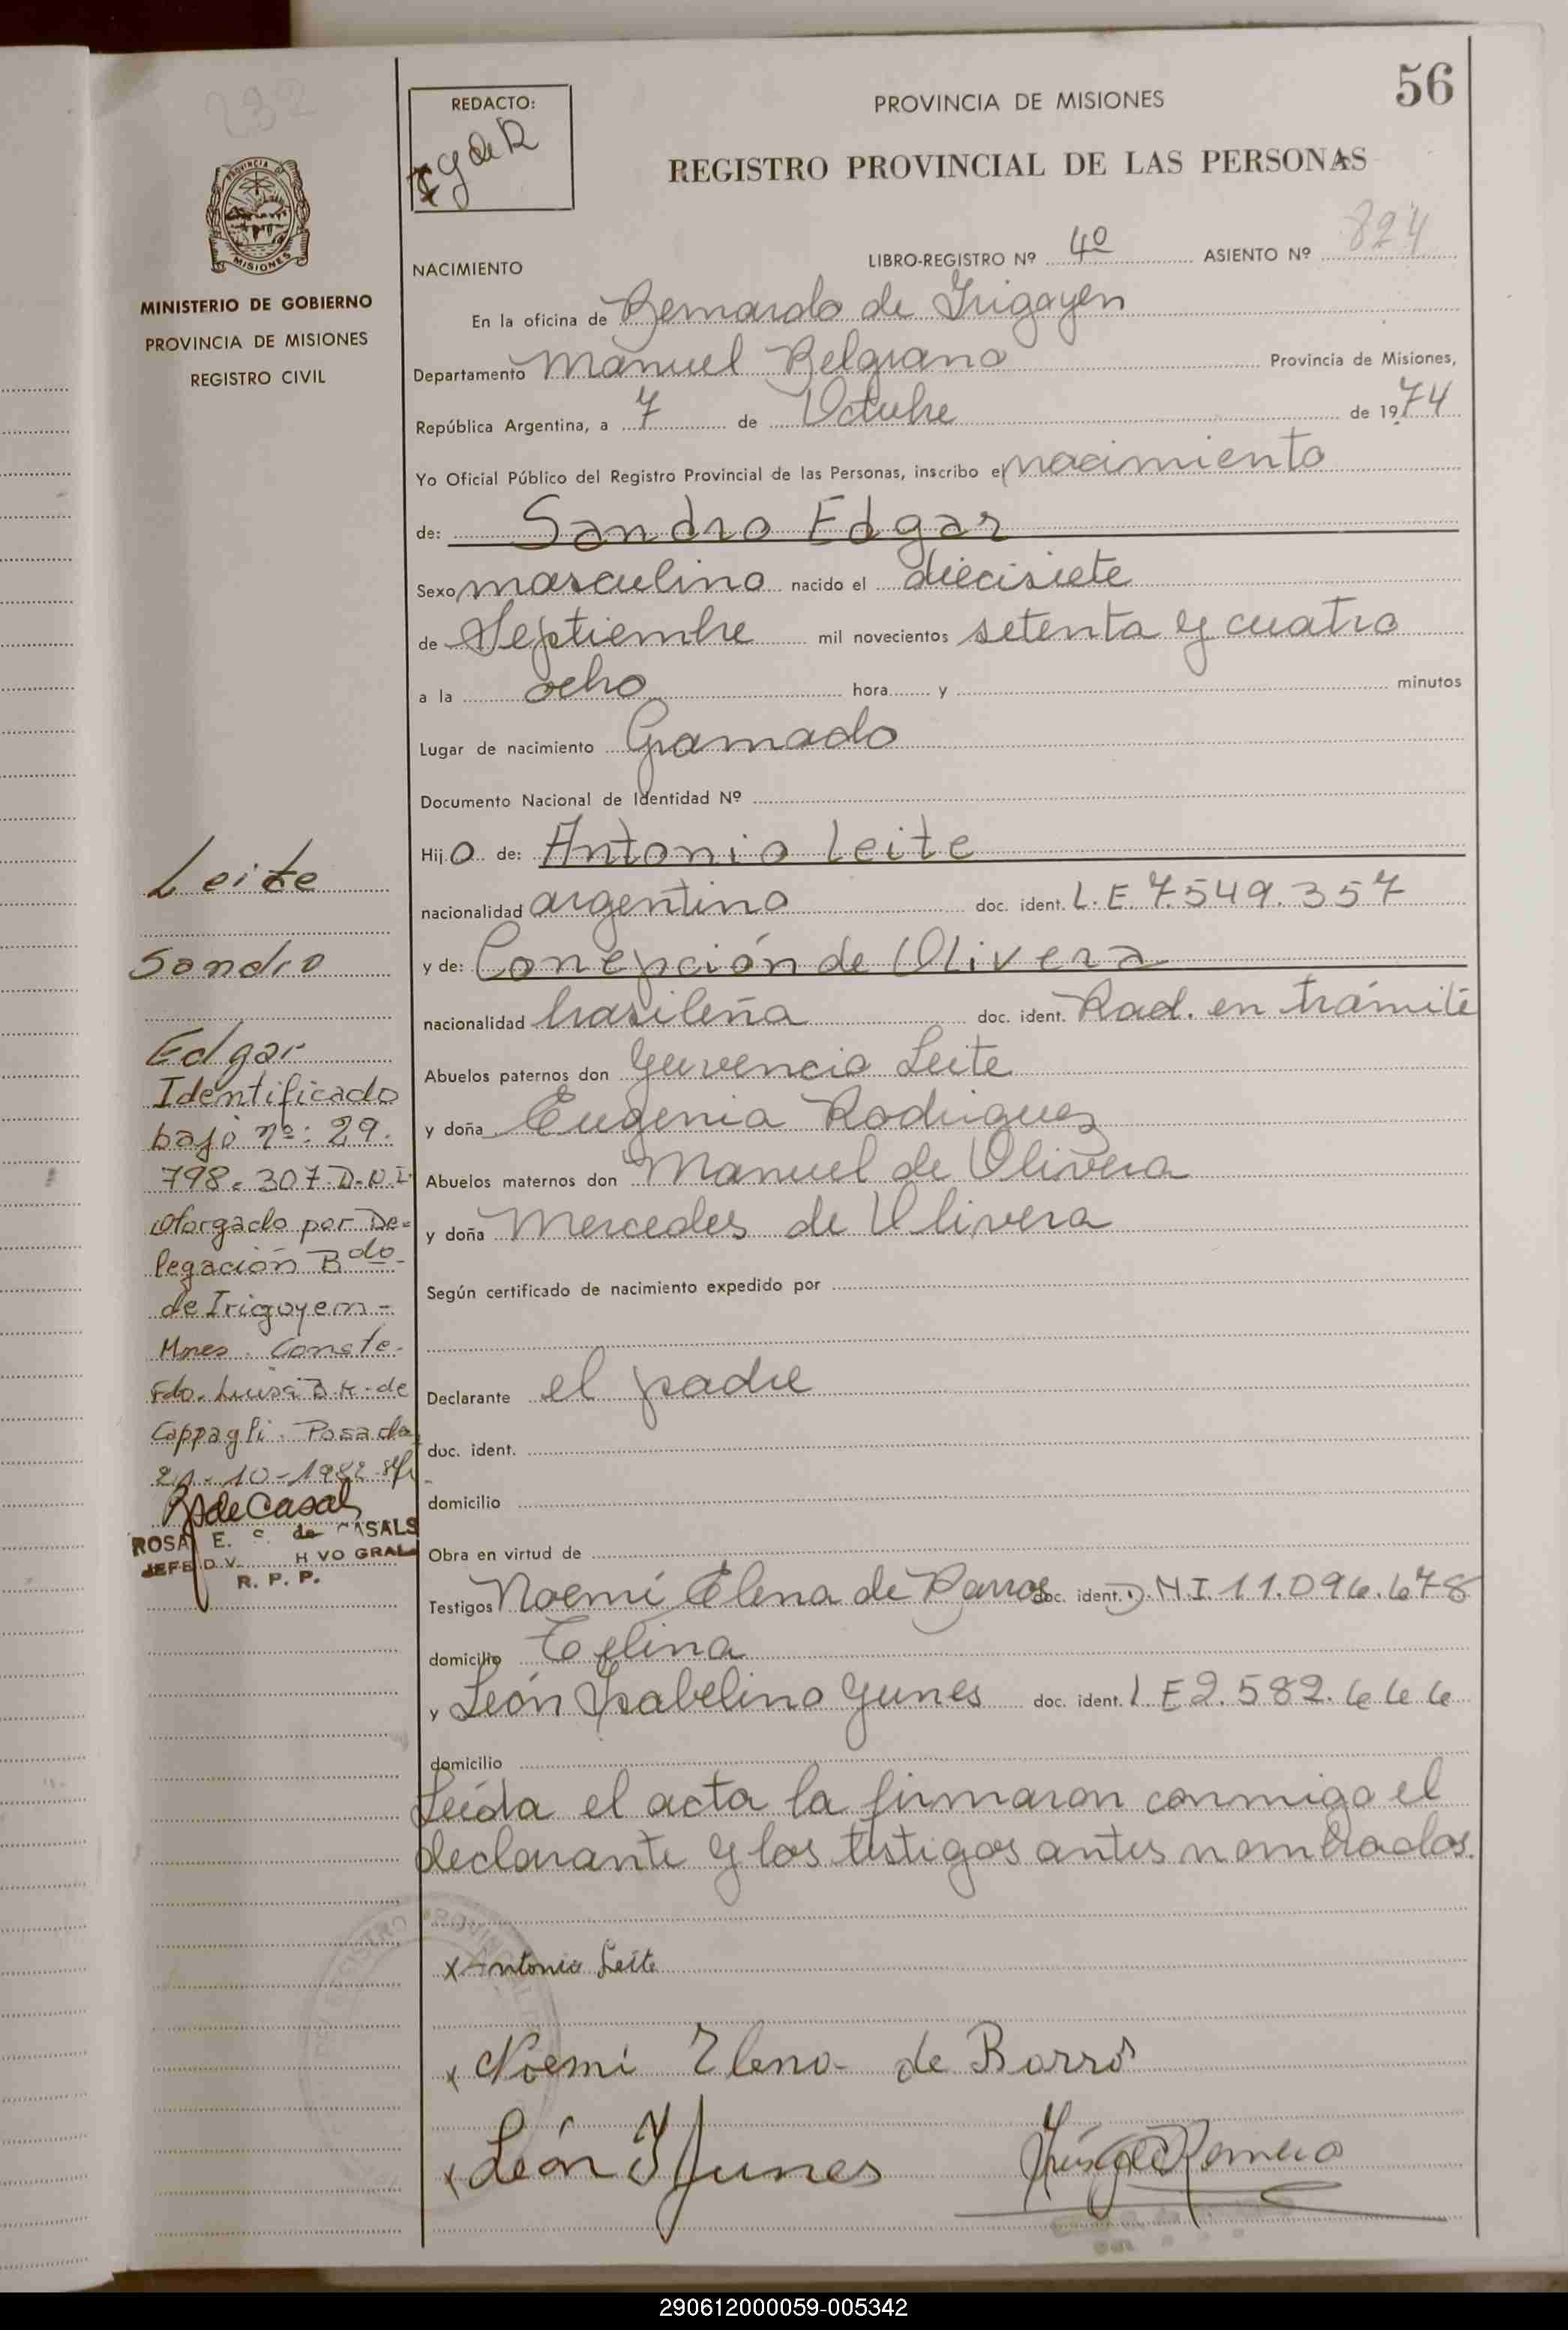 56
REDACTO:
PROVINCIA DE MISIONES
REGISTRO PROVINCIAL DE LAS PERSONAS
NACIMIENTO
LIBRO-REGISTRO Nº 4º ASIENTO Nº 824
En la oficina de Bernardo de Irigoyen
Departamento Manuel Belgrano Provincia de Misiones,
República Argentina, a 7 de Octubre de 1974
Yo Oficial Público del Registro Provincial de las Personas, inscribo el nacimiento
de: Sandro Edgar
Sexo masculino nacido el diecisiete
de Septiembre mil novecientos setenta y cuatro
a la ocho hora y minutos
Lugar de nacimiento Gramado
Documento Nacional de Identidad Nº
Hij o de: Antonio Leite
nacionalidad argentino doc. ident. L.E. 7.549.357
y de: Concepción de Olivera
nacionalidad brasileña doc. ident. Rad. en trámite
Abuelos paternos don Yuvencio Leite
y doña Eugenia Rodriguez
Abuelos maternos don Manuel de Olivera
y doña Mercedes de Olivera
Según certificado de nacimiento expedido por
Declarante el padre
doc. ident.
domicilio
Obra en virtud de
Testigos Noemí Elena de Barros doc. ident. D.N.I. 11.096.678
domicilio
y León Isabelino Yunes doc. ident. L E 2.582.666
domicilio
Leída el acta la firmaron conmigo el
declarante y los testigos antes nombrados.
x Antonio Leite
x Noemi Elena de Barros
x León I Yunes
PROVINCIA
MISIONES
MINISTERIO DE GOBIERNO
PROVINCIA DE MISIONES
REGISTRO CIVIL
Leite
Sandro
Edgar
Identificado
bajo nº: 29.
798.307 D.N.I
Otorgado por De=
legación Bdo
de Irigoyen -
Mnes. Conste.
Fdo. Luisa B K. de
Cappagli. Posadas
21-10-1982
R S de Casals
ROSA E. S. de CASALS
JEFE
R. P. P.
290612000059-005342